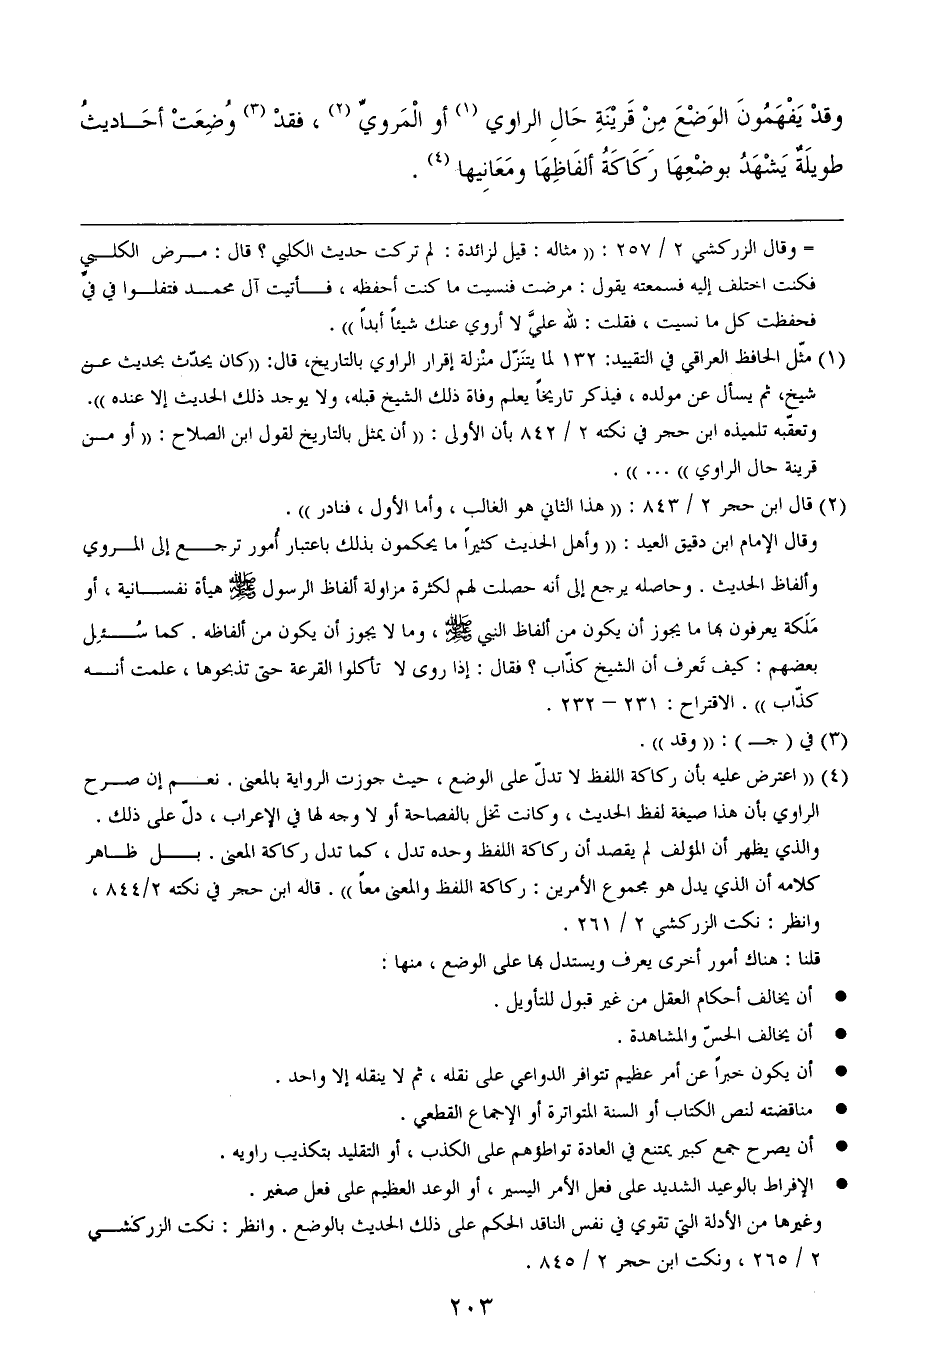 وقدْ يَفْهَمُونَ الوَضْعَ مِنْ قَرِيْنَةِ حَالِ الراوي (١) أو الْمَرويِّ (٢) ، فقدْ (٣) وُضِعَتْ أحَـاديثُ
طويلَةٌ يَشْهَدُ بوضْعِهَا رَكَاكَةُ ألفَاظِهَا ومَعَانِيها (٤) .
= وقال الزركشي ٢ / ٢٥٧ : (( مثاله : قيل لزائدة : لم تركت حديث الكلبي ؟ قال : مـرض الكلـبي
فكنت اختلف إليه فسمعته يقول : مرضت فنسيت ما كنت أحفظه ، فـأتيت آل محمـد فتفلـوا في فيَّ
فحفظت كل ما نسيت ، فقلت : لله عليَّ لا أروي عنك شيئاً أبداً )) .
(١) مثّل الحافظ العراقي في التقييد: ١٣٢ لما يتنَزّل منْزلة إقرار الراوي بالتاريخ، قال: ((كان يحدّث بحديث عـن
شيخ، ثم يسأل عن مولده ، فيذكر تاريخاً يعلم وفاة ذلك الشيخ قبله، ولا يوجد ذلك الحديث إلا عنده )).
وتعقّبه تلميذه ابن حجر في نكته ٢ / ٨٤٢ بأن الأولى : (( أن يمثل بالتاريخ لقول ابن الصلاح : (( أو مـن
قرينة حال الراوي )) ... )) .
(٢) قال ابن حجر ٢ / ٨٤٣ : (( هذا الثاني هو الغالب ، وأما الأول ، فنادر )) .
وقال الإمام ابن دقيق العيد : (( وأهل الحديث كثيراً ما يحكمون بذلك باعتبار أُمور ترجـع إلى المـروي
وألفاظ الحديث . وحاصله يرجع إلى أنه حصلت لهم لكثرة مزاولة ألفاظ الرسول ﷺ هيأة نفسـانية ، أو
مَلَكة يعرفون بها ما يجوز أن يكون من ألفاظ النبي ﷺ ، وما لا يجوز أن يكون من ألفاظه . كما سُـئِل
بعضهم : كيف تَعرف أن الشيخ كذّاب ؟ فقال : إذا روى لا تأكلوا القرعة حتى تذبحوها ، علمت أنـه
كذّاب )) . الاقتراح : ٢٣١ – ٢٣٢ .
(٣) في ( جـ ) : (( وقد )) .
(٤) (( اعترض عليه بأن ركاكة اللفظ لا تدلّ على الوضع ، حيث جوزت الرواية بالمعنى . نعـم إن صـرح
الراوي بأن هذا صيغة لفظ الحديث ، وكانت تخل بالفصاحة أو لا وجه لها في الإعراب ، دلّ على ذلك .
والذي يظهر أن المؤلف لم يقصد أن ركاكة اللفظ وحده تدل ، كما تدل ركاكة المعنى . بـل ظـاهر
كلامه أن الذي يدل هو مجموع الأمرين : ركاكة اللفظ والمعنى معاً )) . قاله ابن حجر في نكته ٨٤٤/٢ ،
وانظر : نكت الزركشي ٢ / ٢٦١ .
قلنا : هناك أمور أخرى يعرف ويستدل بها على الوضع ، منها :
● أن يخالف أحكام العقل من غير قبول للتأويل .
● أن يخالف الحسّ والمشاهدة .
● أن يكون خبراً عن أمر عظيم تتوافر الدواعي على نقله ، ثم لا ينقله إلا واحد .
● مناقضته لنص الكتاب أو السنة المتواترة أو الإجماع القطعي .
● أن يصرح جمع كبير يمتنع في العادة تواطؤهم على الكذب ، أو التقليد بتكذيب راويه .
● الإفراط بالوعيد الشديد على فعل الأمر اليسير ، أو الوعد العظيم على فعل صغير .
وغيرها من الأدلة التي تقوي في نفس الناقد الحكم على ذلك الحديث بالوضع . وانظر : نكت الزركشـي
٢ / ٢٦٥ ، ونكت ابن حجر ٢ / ٨٤٥ .
٢٠٣